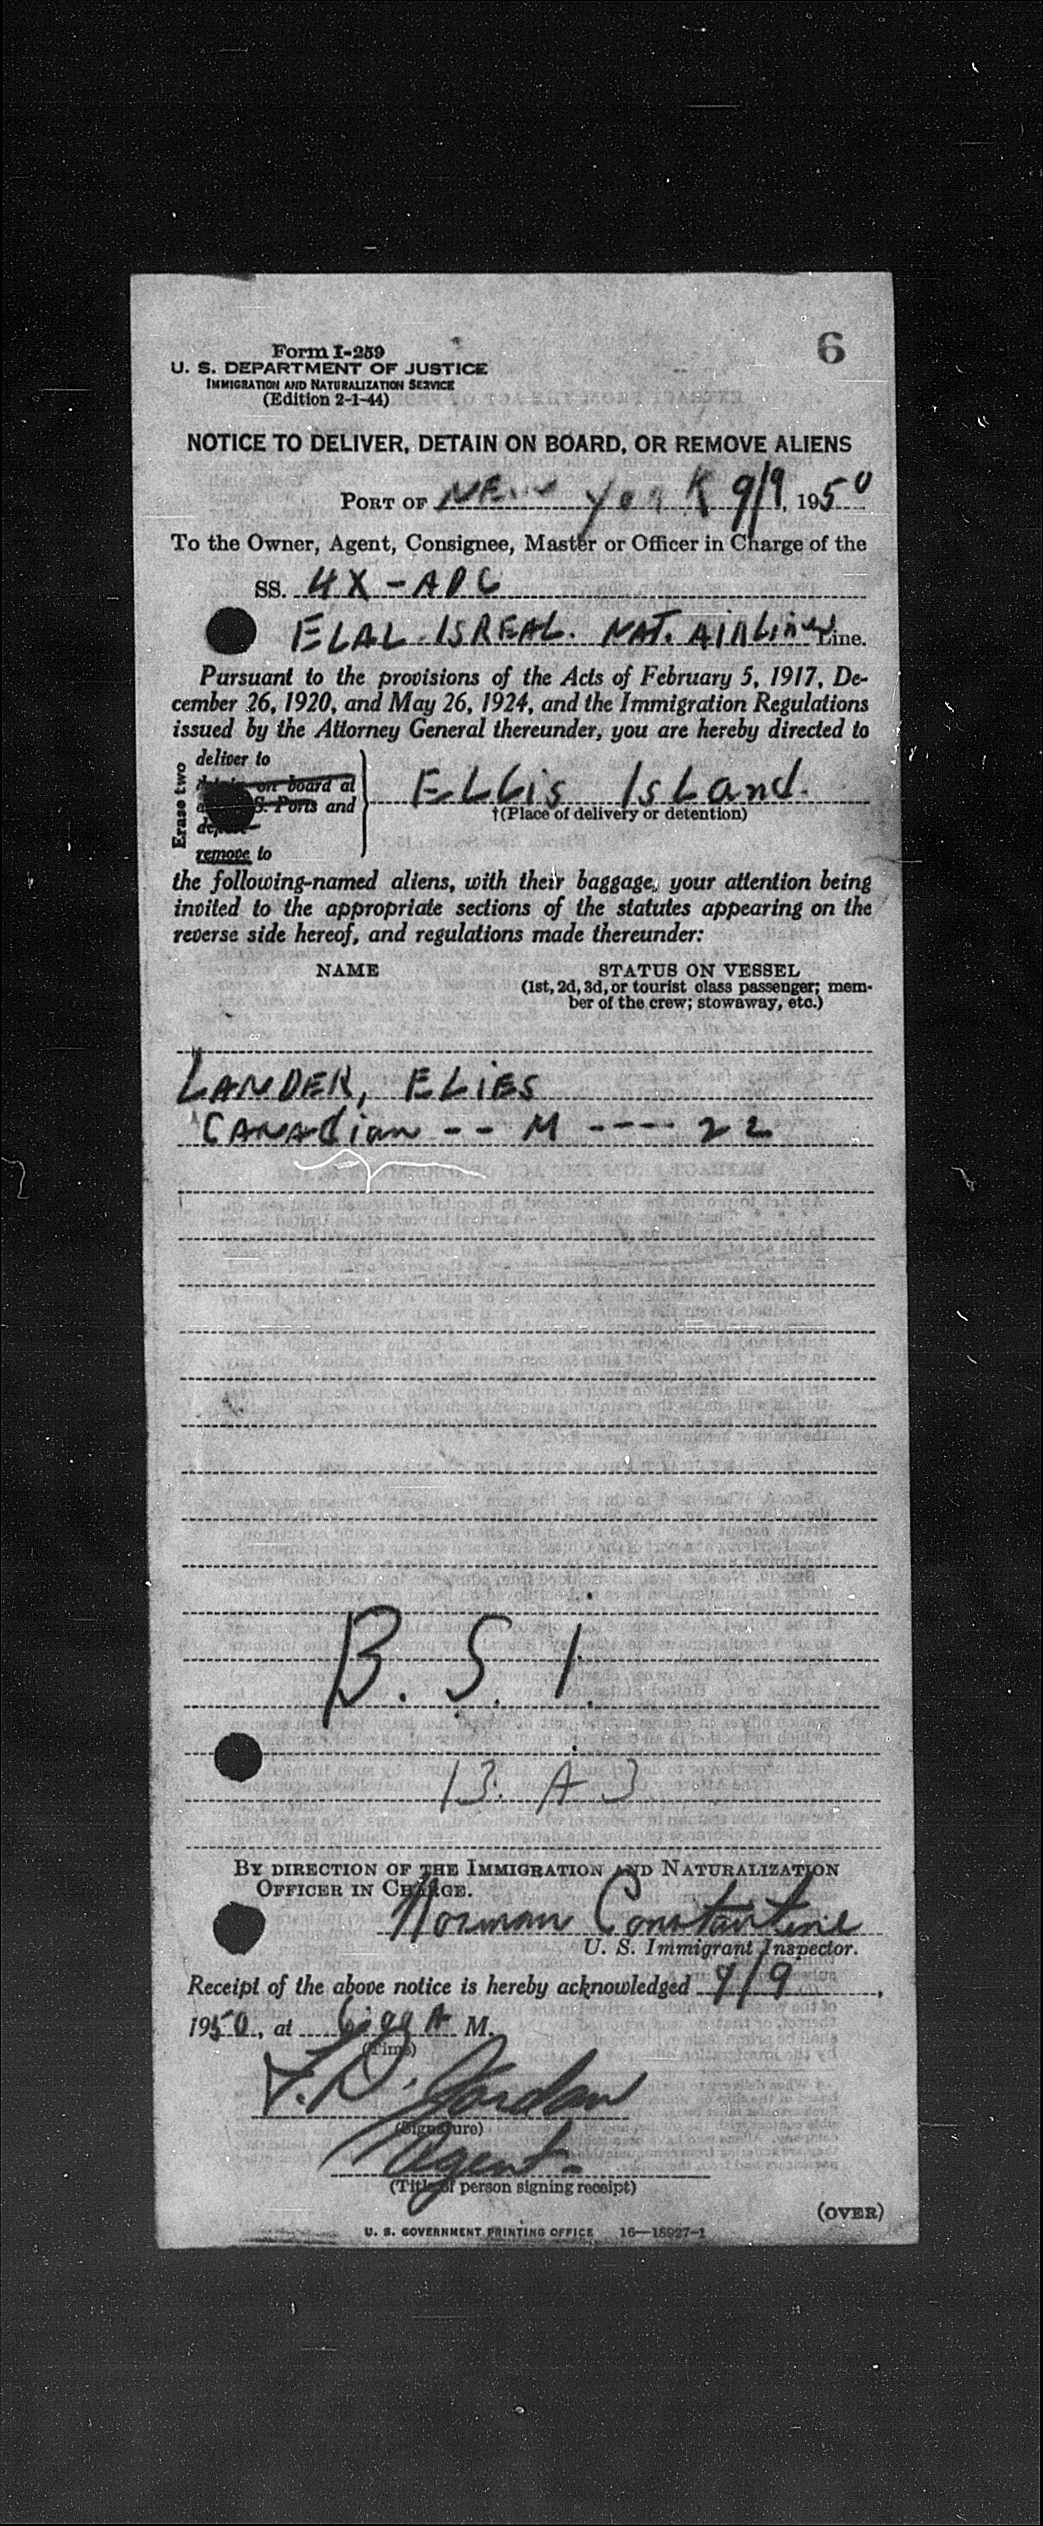 6
Form I-259
U. S. DEPARTMENT OF JUSTICE
IMMIGRATION AND NATURALIZATION SERVICE
(Edition 2-1-44)
NOTICE TO DELIVER, DETAIN ON BOARD, OR REMOVE ALIENS
PORT OF NEW YORK 9/9, 1950
To the Owner, Agent, Consignee, Master or Officer in Charge of the
SS. 4X-ADC
ELAL ISREAL. NAT. AIRLINE Line.
Pursuant to the provisions of the Acts of February 5, 1917, De-
cember 26, 1920, and May 26, 1924, and the Immigration Regulations
issued by the Attorney General thereunder, you are hereby directed to
Erase two
deliver to
on board at
S. Ports and
remove to
ELLis IsLand.
†(Place of delivery or detention)
the following-named aliens, with their baggage, your attention being
invited to the appropriate sections of the statutes appearing on the
reverse side hereof, and regulations made thereunder:
NAME STATUS ON VESSEL
(1st, 2d, 3d, or tourist class passenger; mem-
ber of the crew; stowaway, etc.)
LANDER, ELiES
CANADian -- M ---- 22
B. S. i.
13. A 3
BY DIRECTION OF THE IMMIGRATION AND NATURALIZATION
OFFICER IN CHARGE.
Norman Constantine
U. S. Immigrant Inspector.
Receipt of the above notice is hereby acknowledged 9/9,
1950, at A M.
(Time)
F. D. Jordan
(Signature)
Agent-
(Title of person signing receipt)
(OVER)
U. S. GOVERNMENT PRINTING OFFICE 16—18927-1